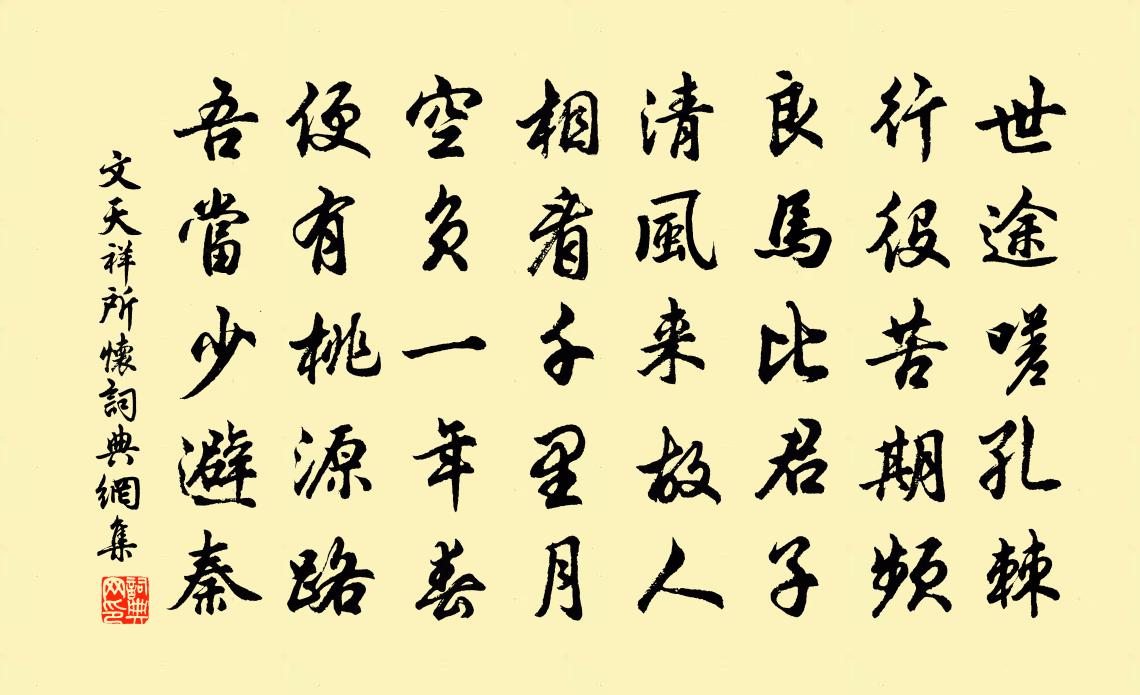 世途嗟孔棘
行役苦期頻
良馬比君子
清風来故人
相看千里月
空負一年春
便有桃源路
吾當少避秦
文天祥所懷詞典網集
詞典网印